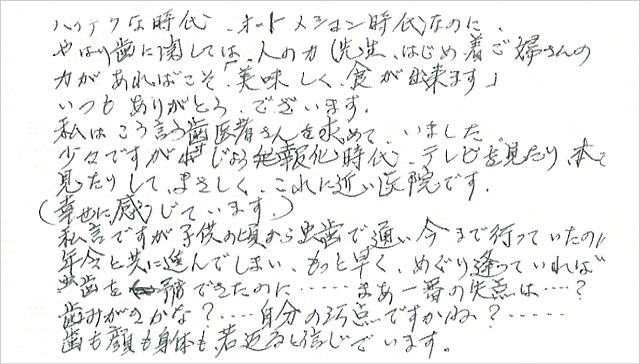 ハイテクな時代、オートメション時代なのに、
やはり歯に関しては、人の力（先生、はじめ着ご婦さんの
力があればこそ「美味しく、食が出来ます」
いつもありがとう、ございます。
私はこう言う歯医者さんを求めて、いました。
少々ですが じょう報化時代、テレビを見たり、本で
見たりして、まさしく、これに近い医院です。
（幸せに感じています。）
私言ですが子供の頃から虫歯で通い今まで行っていたのに
年令と共に進んでしまい、もっと早く、めぐり逢っていれば
虫歯を 予防できたのに……まあ一番の失点は…？
歯みがきかな？…自分の汚点ですかね？……
歯も顔も身体も若返ると信じています。